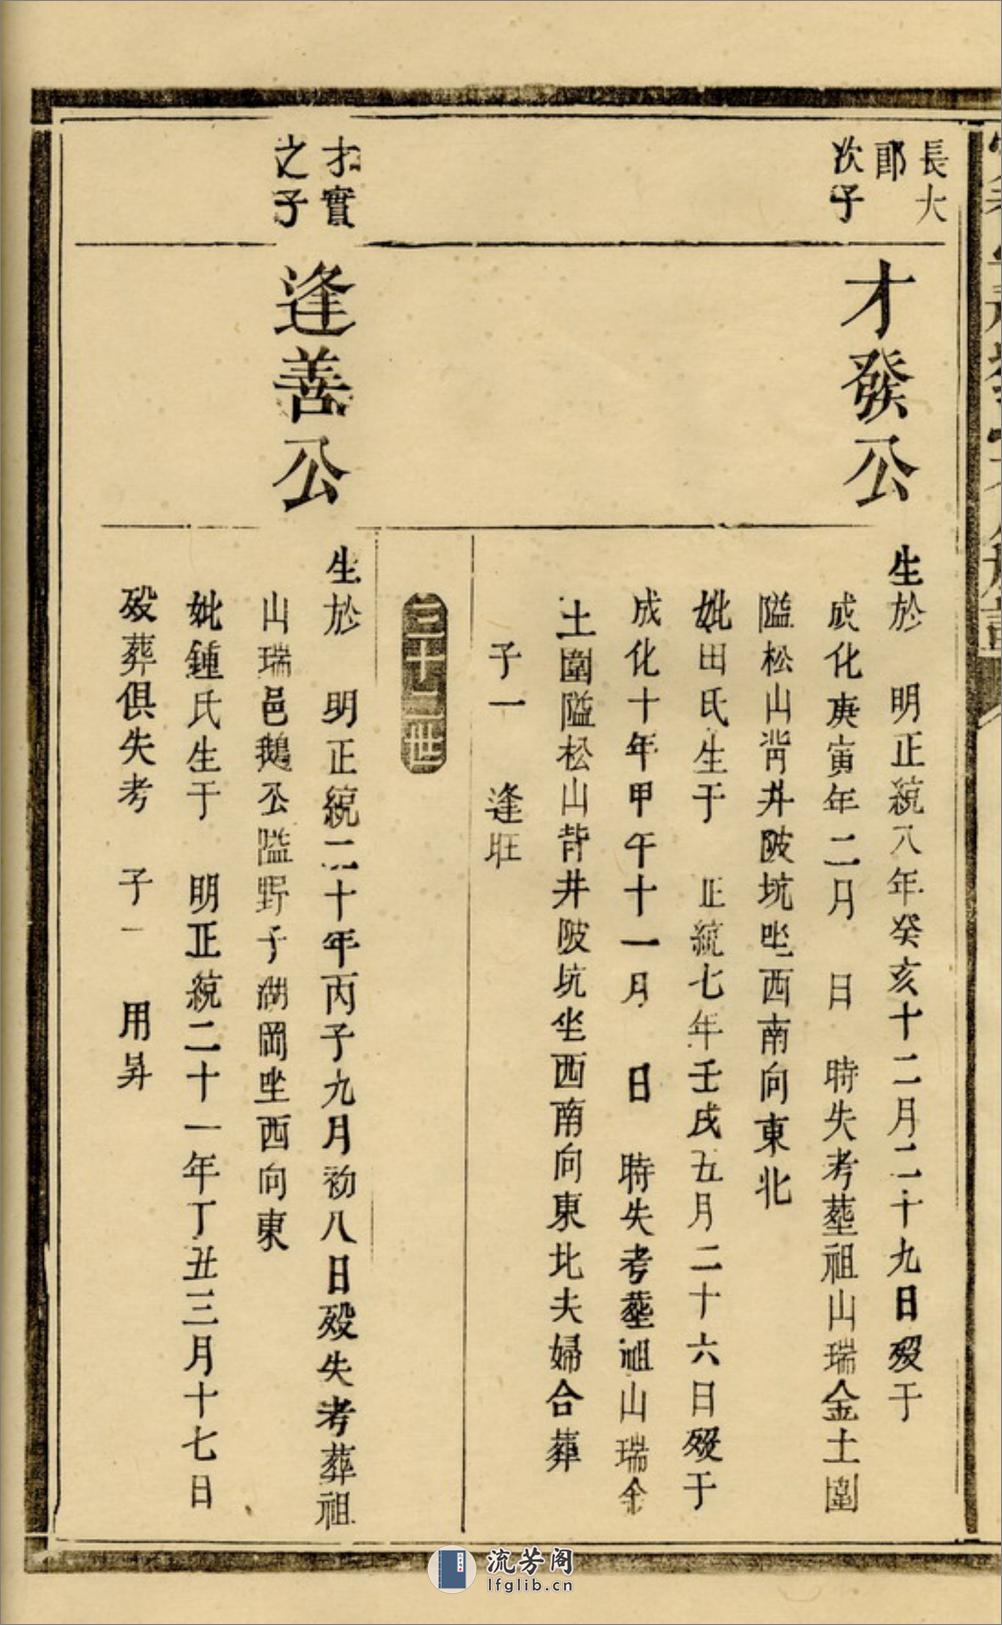 長大
郎
次子
才發公
生於 明正統八年癸亥十二月二十九日殁于
成化庚寅年二月 日 時失考塟祖山瑞金土圍
隘松山背井陂坑坐西南向東北
妣田氏生于 正統七年壬戌五月二十六日殁于
成化十年甲午十一月 日 時失考塟祖山瑞金
土圍隘松山背井陂坑坐西南向東北夫婦合葬
子一 逢旺
三十二世
才實
之子
逢善公
生於 明正統二十年丙子九月初八日殁失考葬祖
山瑞邑鵝公隘野子湖岡坐西向東
妣鍾氏生于 明正統二十一年丁丑三月十七日
殁葬俱失考 子一 用昇
流芳阁
lfglib.cn